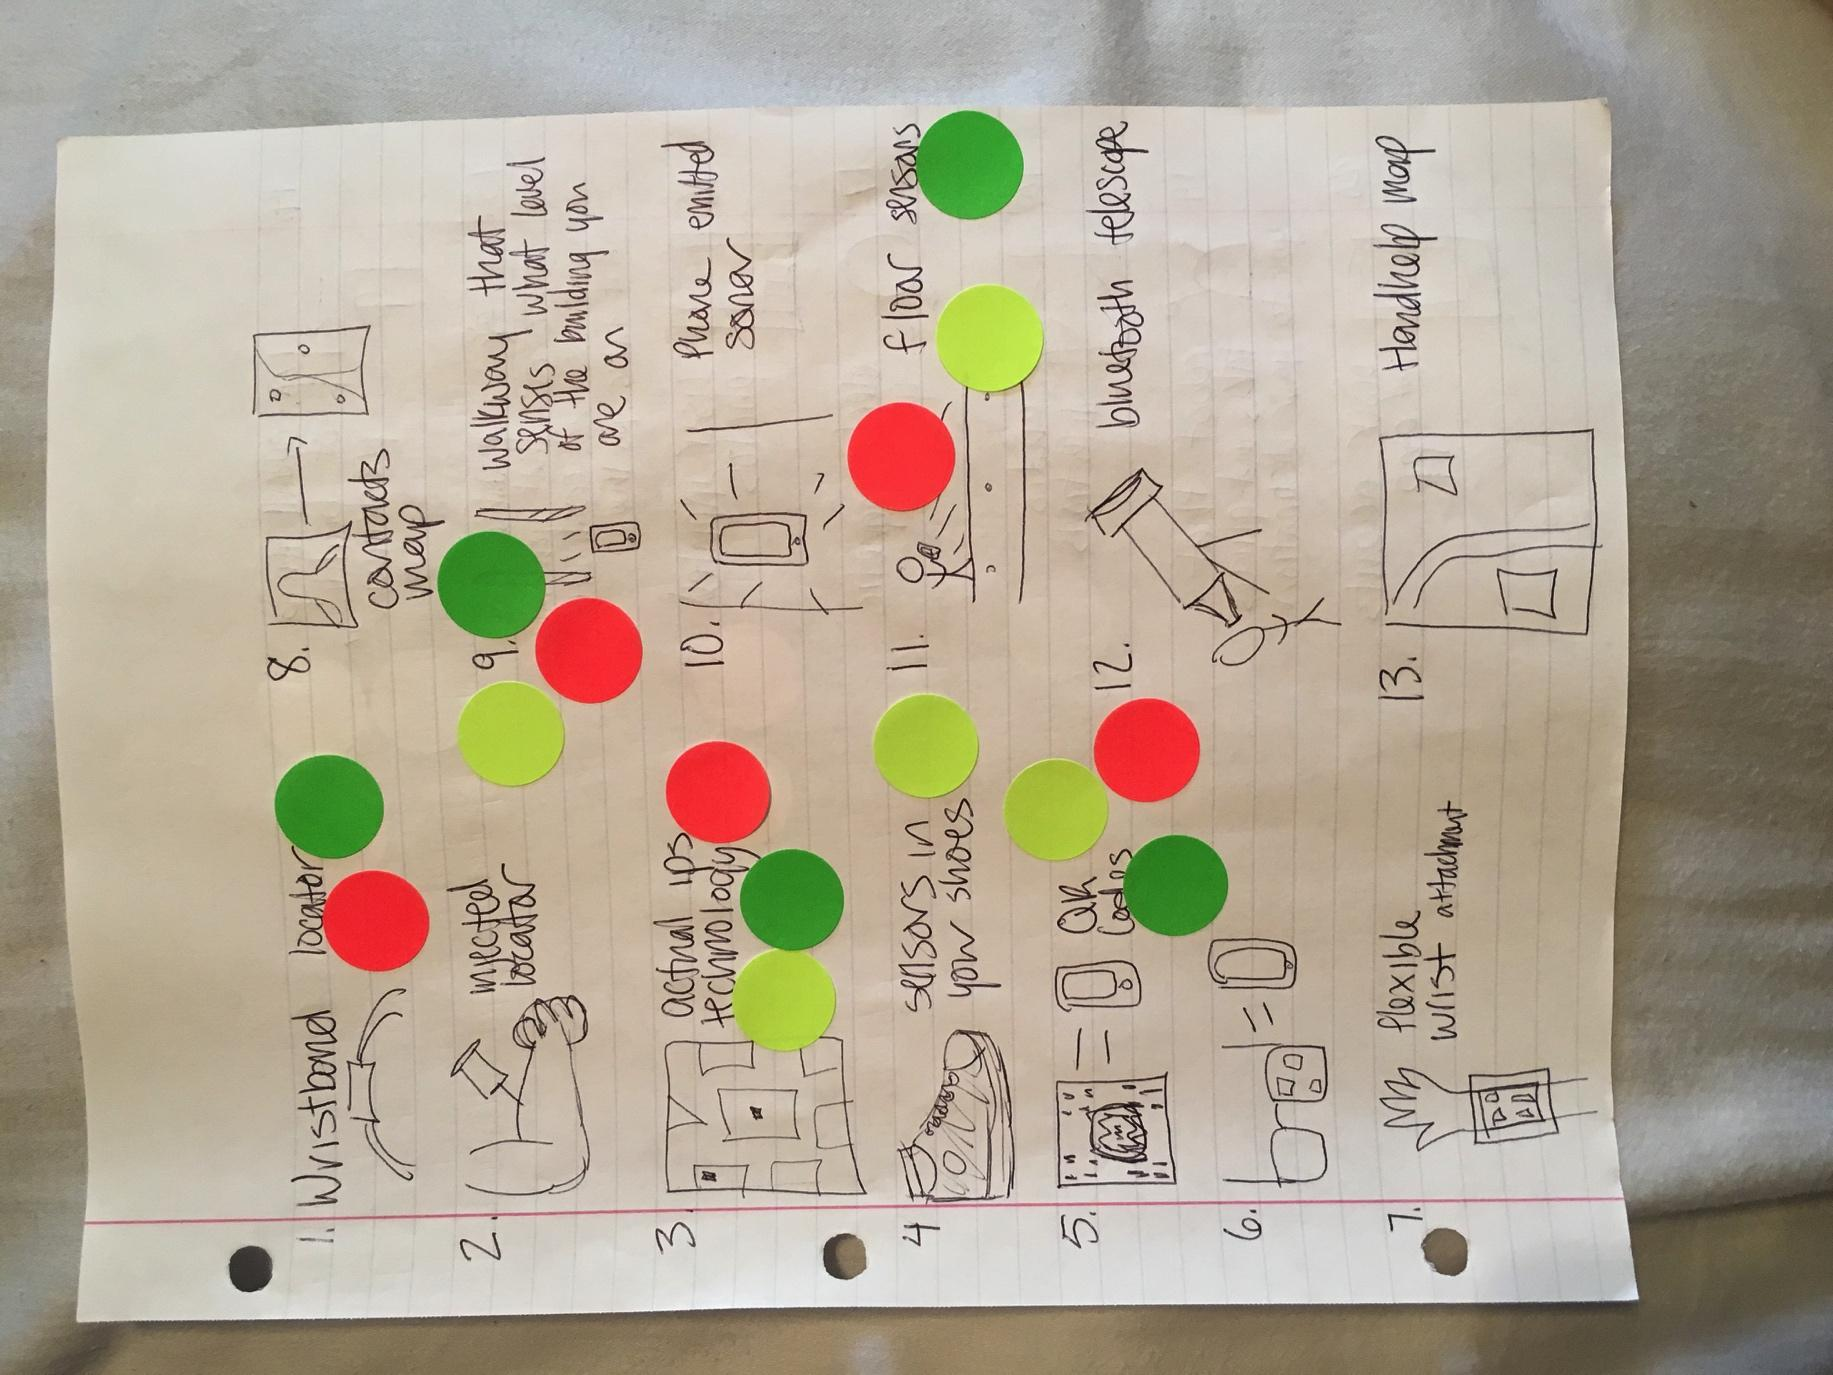 1. Wristband locator
2.
injected
locator
3.
actual ips
technology
4
sensors in
your shoes
5.
QR
codes
6.
7.
flexible
wrist attachmnt
8.
contacts
map
9.
walkway that
senses what level
of the building you
are on
10.
Phone emitted
sonar
11.
floor sensors
12.
bluetooth telescope
13.
Handhelp map